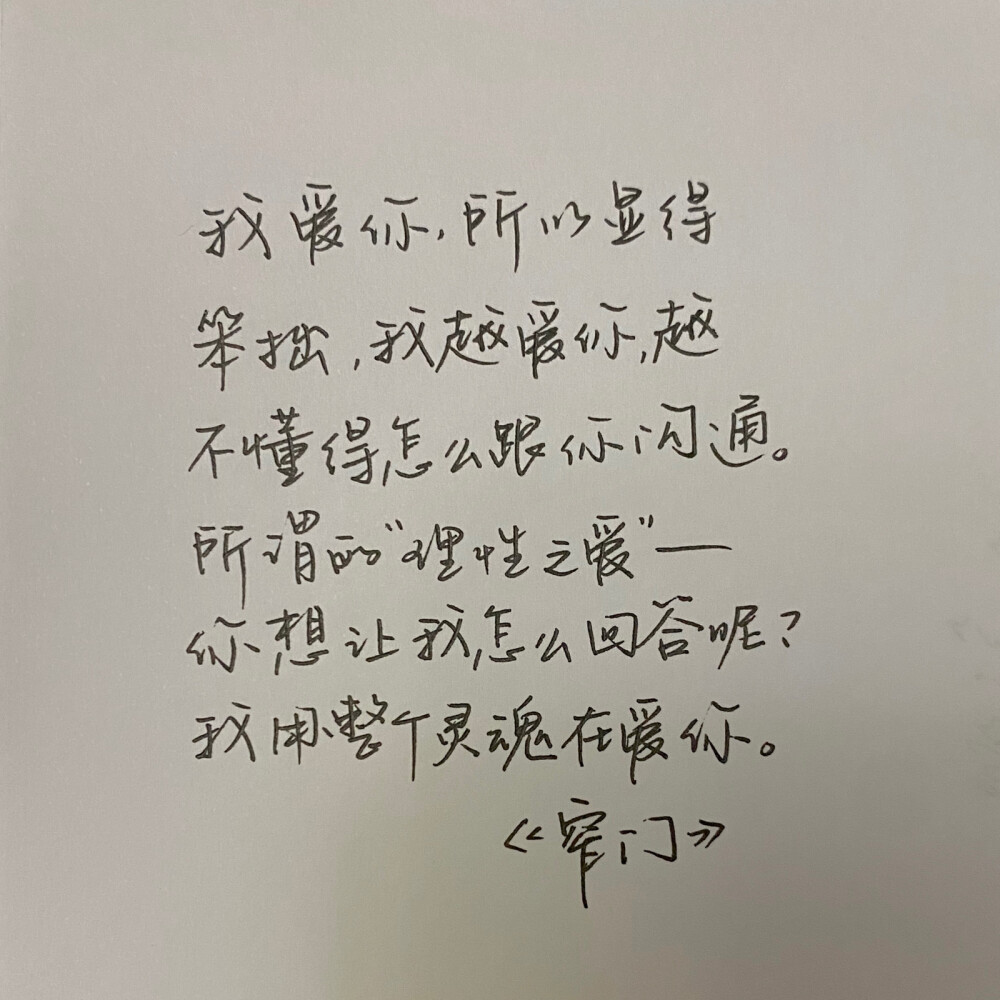 我爱你，所以显得
笨拙，我越爱你，越
不懂得怎么跟你沟通。
所谓的“理性之爱”—
你想让我怎么回答呢？
我用整个灵魂在爱你。
《窄门》